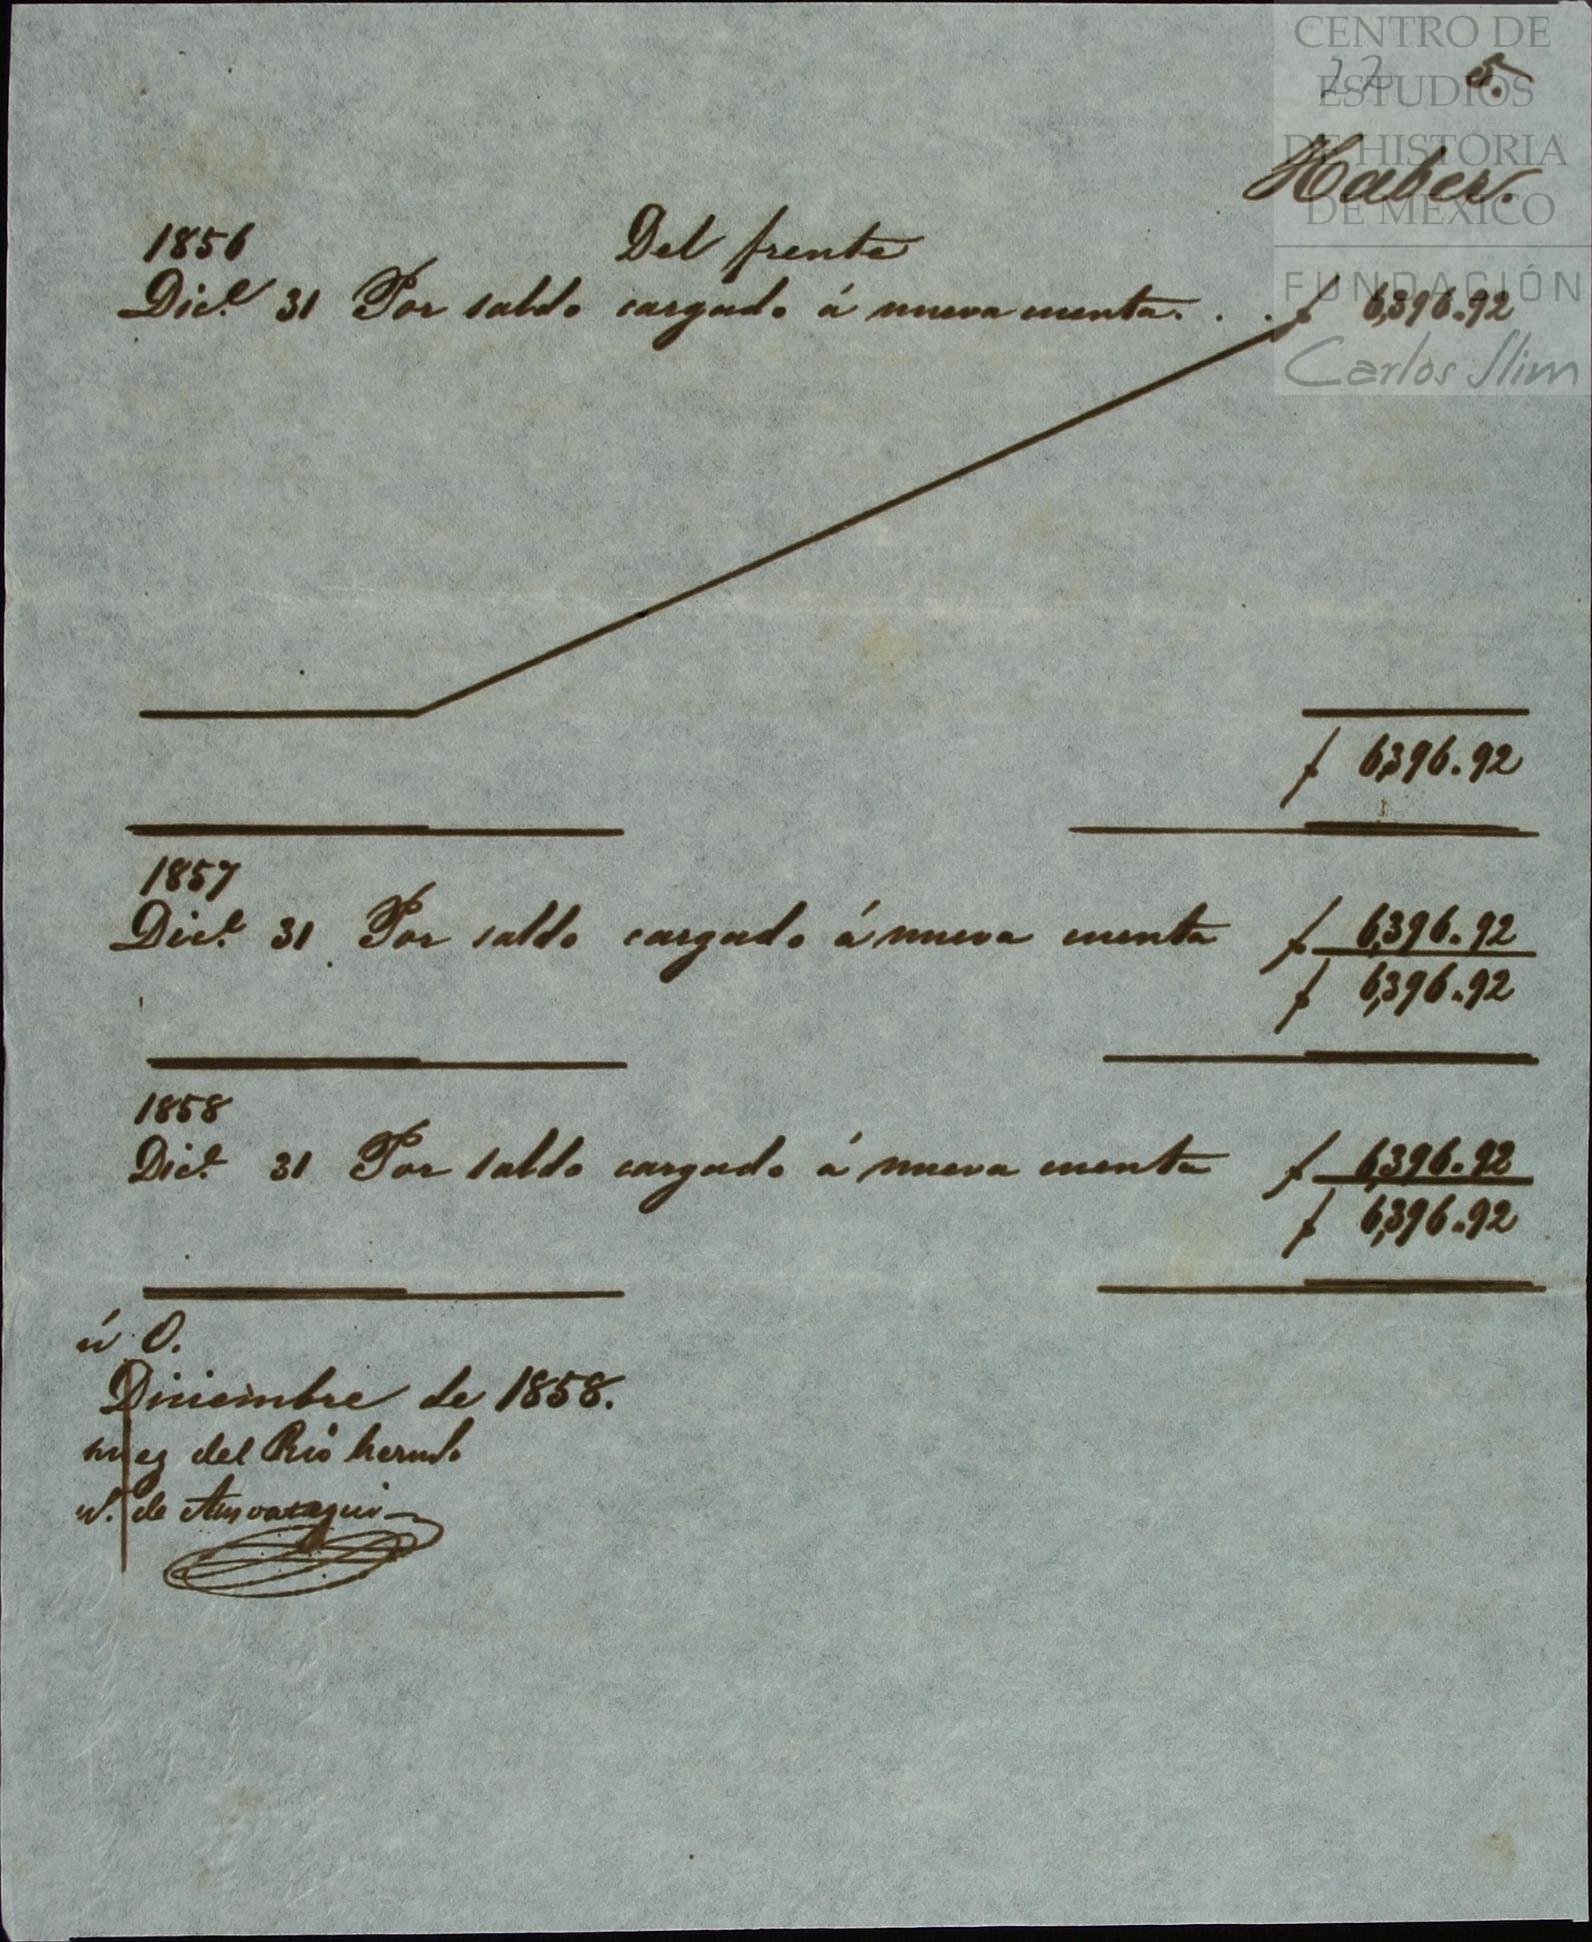 CENTRO DE
ESTUDIOS
DE HISTORIA
DE MÉXICO
FUNDACIÓN
Carlos Slim
22 5.
Haber.
1856 Del frente
Dice. 31 Por saldo cargado á nueva cuenta. . . $ 6,396.92
$ 6,396.92
1857
Dice. 31 Por saldo cargado á nueva cuenta $ 6,396.92
$ 6,396.92
1858
Dice. 31 Por saldo cargado á nueva cuenta $ 6,396.92
$ 6,396.92
ú O.
Diciembre de 1858.
del Rio hermo
de